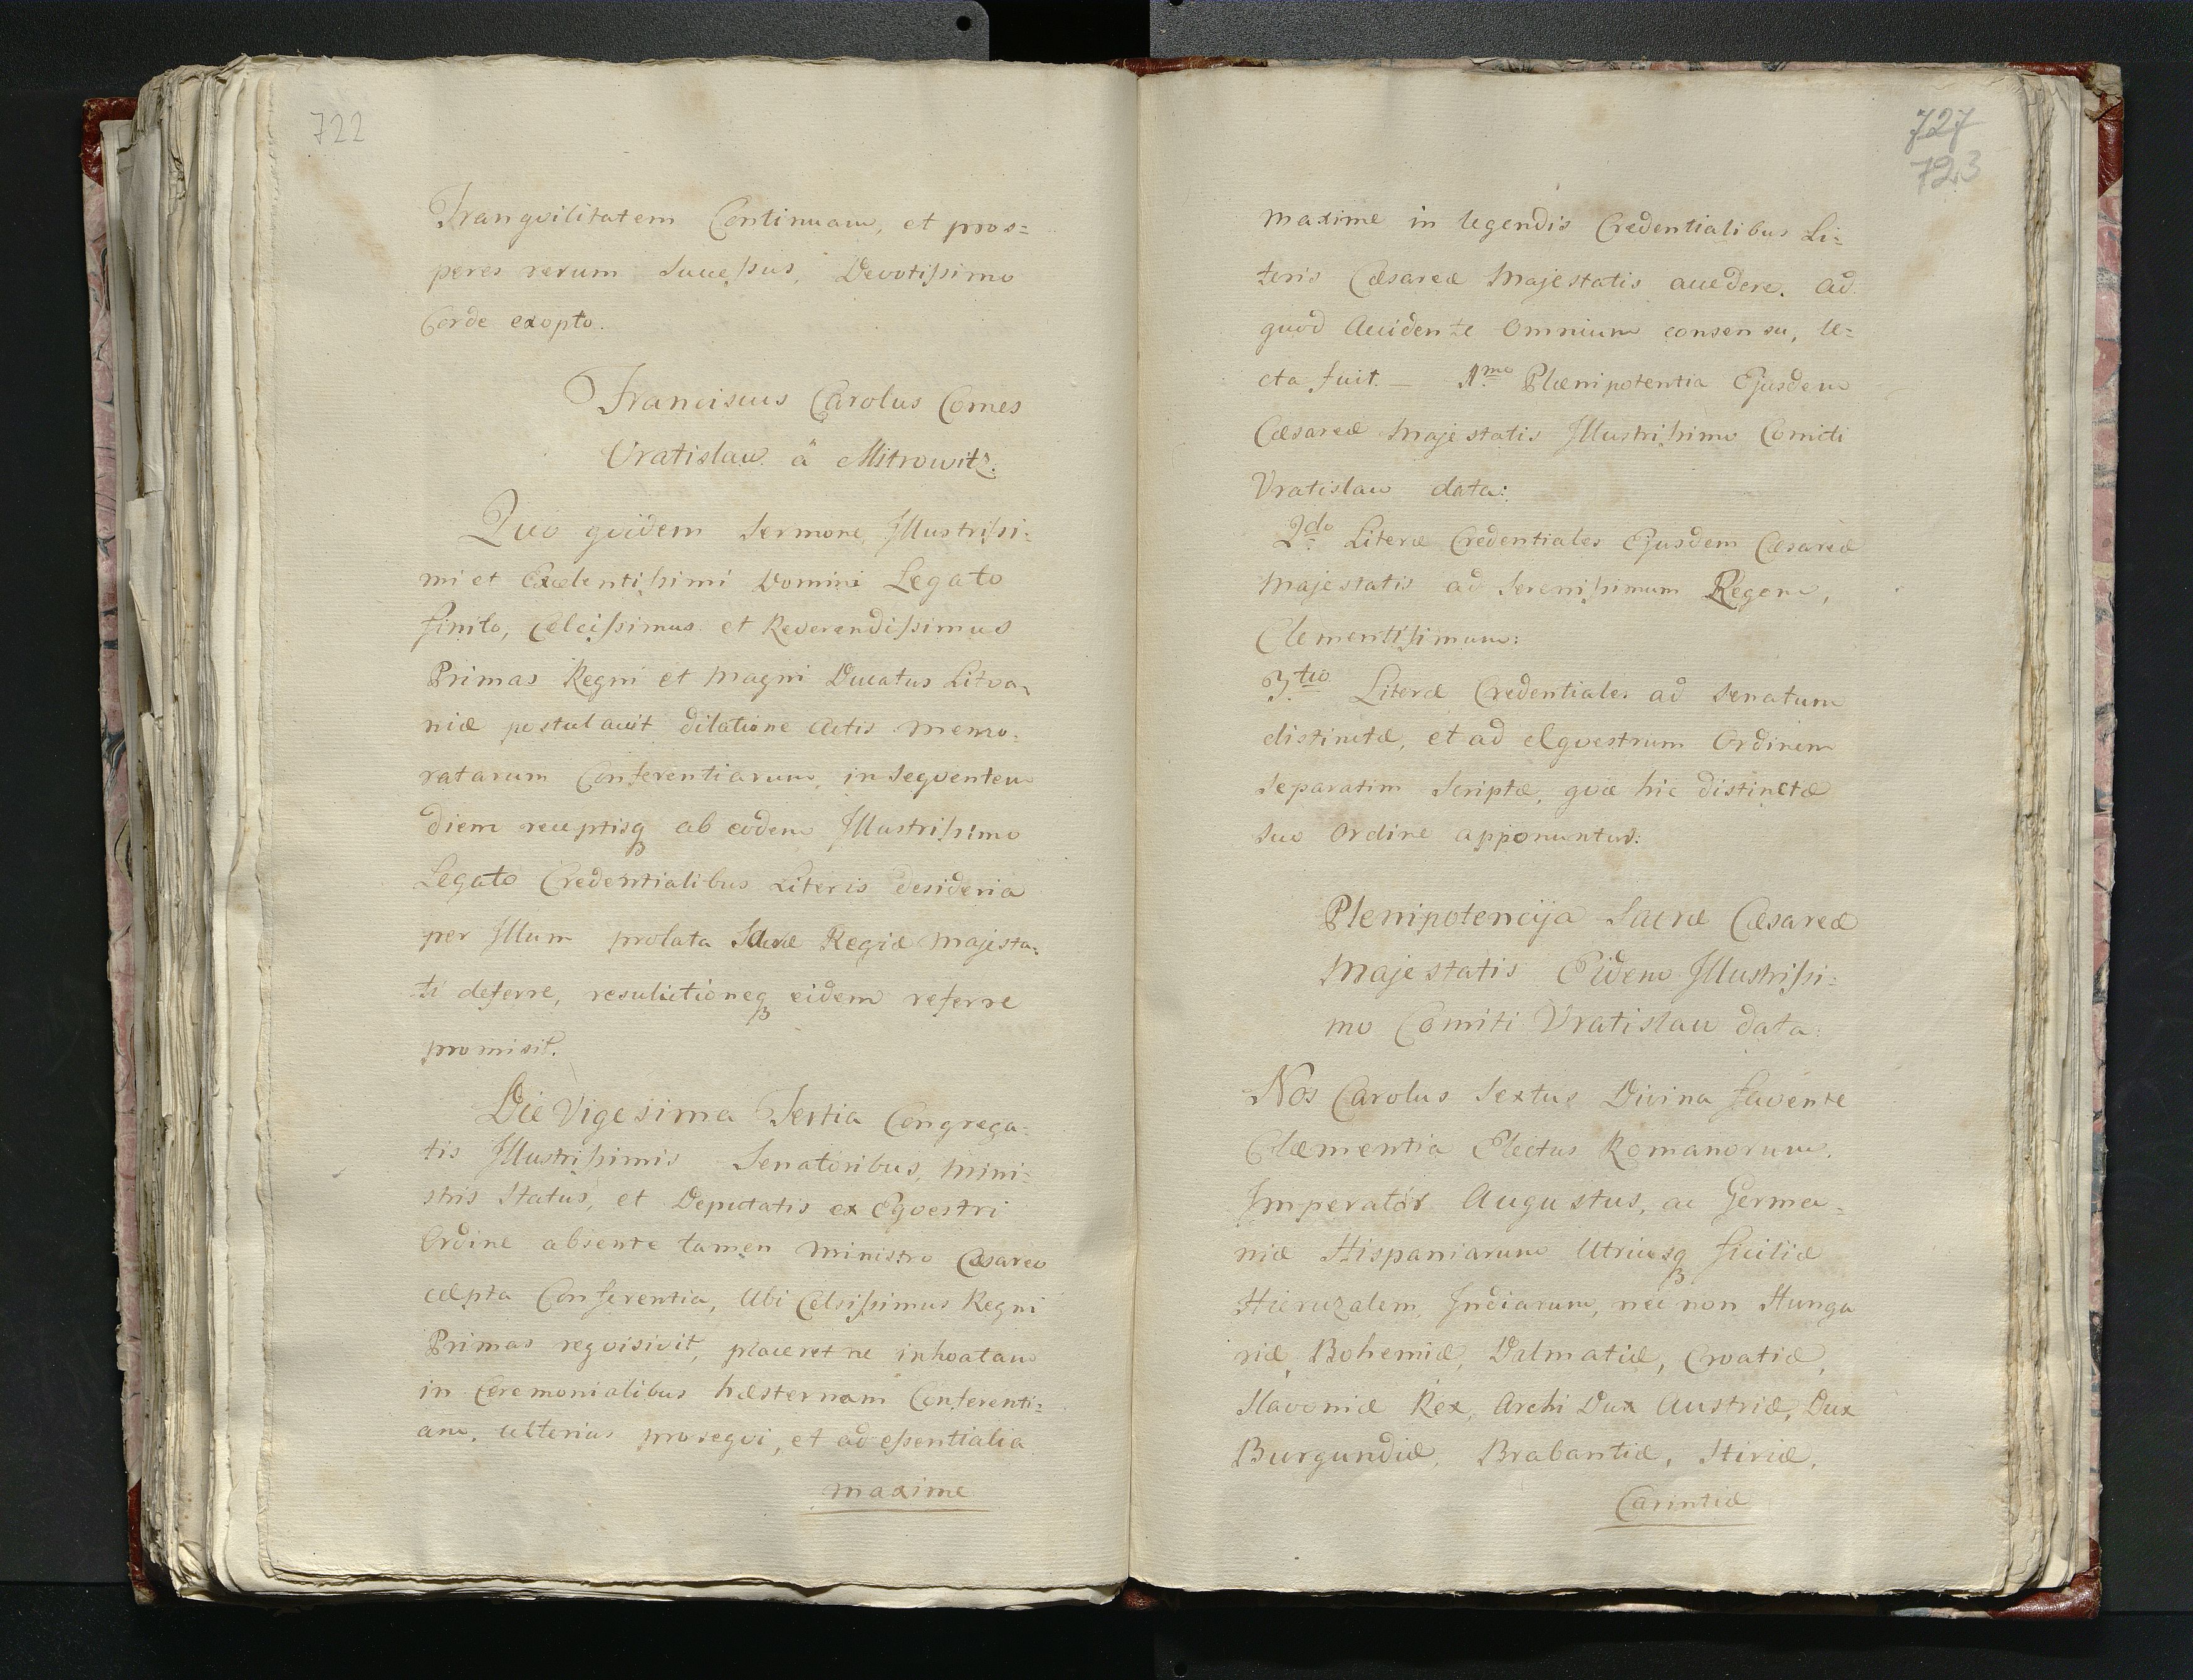 722
Tranqvilitatem Continuam, et pros=
peres rerum Sucessus, Devotissimo
Corde exopto.
Franciscus Carolus Comes
Vratislau â Mitrowitz.
Quo qvidem Sermone, Illustrissi=
mi et Excelentissimi Domini Legato
finito, Celcissimus et Reverendissimus
Primas Regni et Magni Ducatus Litva=
niæ postulavit dilatione Actis memo=
ratarum Conferentiarum, in Seqventem
diem receptisq ab eodem Illustrissimo
Legato Credentialibus Literis desideria
per Illum prolata Sacræ Regiæ Majesta=
ti deferre, resulutioneq eidem referre
promisit.
Die Vigesima Tertia Congrega=
tis Illustrissimis Senatoribus, Mini=
stris Status, et Deputatis ex Eqvestri
Ordine absente tamen Ministro Cæsareo
cæpta Conferentia, Ubi Celsissimus Regni
Primas reqvisivit, placeret ne inhoatam
in Ceremonialibus hæsternam Conferenti=
am, ulterius proseqvi, et ad essentialia
maxime
727
723
maxime in legendis Credentialibus Li=
teris Cæsareæ Majestatis accedere. Ad
quod Accidente Omnium consensu, le=
cta fuit. — 1mo Plænipotentia Ejusdem
Cæsareæ Majestatis Illustrissimo Comiti
Vratislau data:
2do Literæ Credentiales Ejusdem Cæsareæ
Majestatis ad Serenissimum Regem,
Clementissimum:
3tio Literæ Credentiales ad Senatum
distinctæ, et ad Eqvestrum Ordinem
Separatim Scriptæ, qvæ hic distinctæ
suo Ordine apponuntur:
Plenipotencija Sacræ Cæsareæ
Majestatis Eidem Illustrissi=
mo Comiti Vratislau data:
Nos Carolus Sextus Divina favente
Clæmentia Electus Romanorum
Imperator Augustus, ac Germa=
niæ Hispaniarum Utriusq Siciliæ
Hieruzalem, Indiarum, nec non Hunga
riæ, Bohemiæ, Dalmatiæ, Croatiæ,
Slavoniæ Rex, Archi Dux Austriæ, Dux
Burgundiæ, Brabantiæ, Stiriæ,
Carintiæ